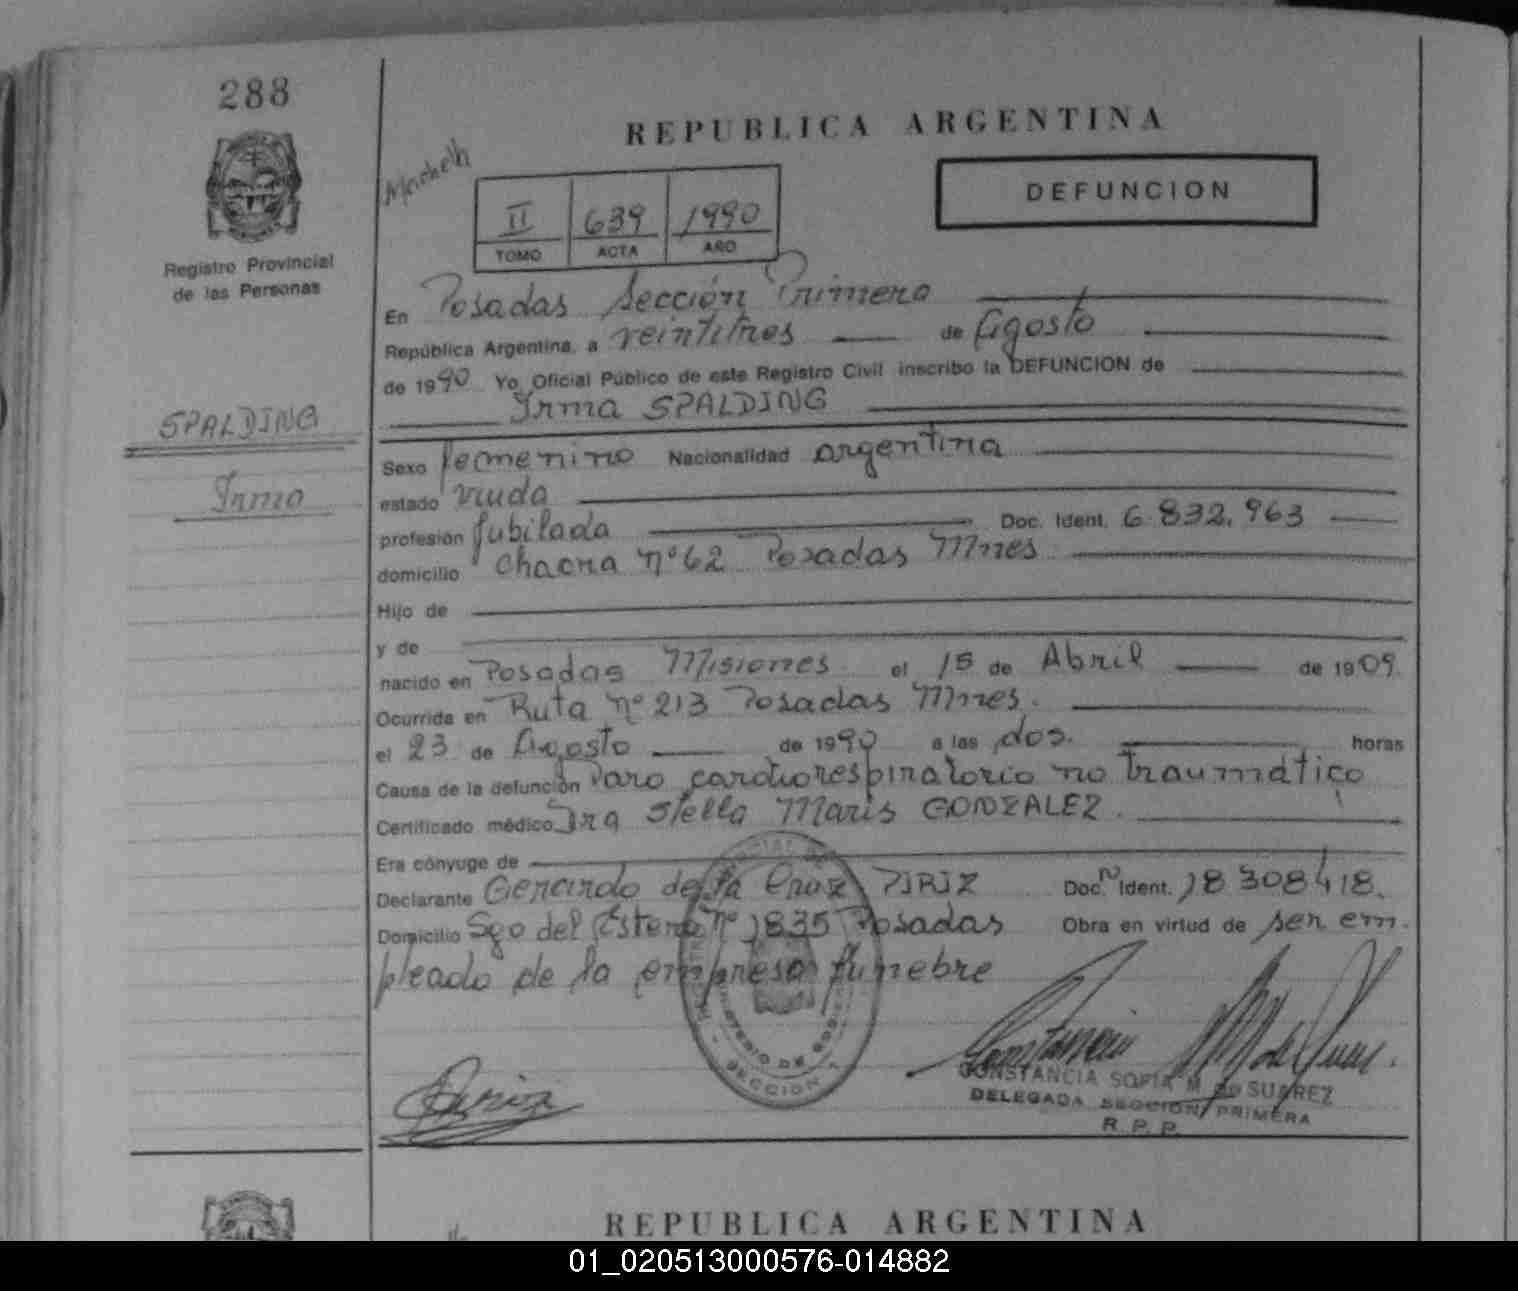 288
REPUBLICA ARGENTINA
DEFUNCION
II 639 1990
TOMO ACTA AÑO
Registro Provincial
de las Personas
En Posadas Sección Primera
República Argentina, a veintitres de Agosto
de 1990 Yo, Oficial Público de este Registro Civil inscribo la DEFUNCION de
Irma SPALDING
SPALDING
Irma
Sexo femenino Nacionalidad argentina
estado viuda
profesión Jubilada Doc. Ident. 6.832.963
domicilio Chacra Nº 62 Posadas Mnes
Hijo de
y de
nacido en Posadas Misiones el 15 de Abril de 1909.
Ocurrida en Ruta Nº 213 Posadas Mnes.
el 23 de Agosto de 1990 a las dos. horas
Causa de la defunción Paro cardiorespiratorio no traumático
Certificado médico Dra Stella Maris GONZALEZ.
Era cónyuge de
Declarante Gerardo de la Cruz PIRIZ Doc. Ident. 18.308.418.
Domicilio Sgo del Estero Nº 1835 Posadas Obra en virtud de ser em-
pleado de la empresa fúnebre
SECCION
CONSTANCIA SOFIA M. de SUAREZ
DELEGADA SECCION PRIMERA
R. P. P.
REPUBLICA ARGENTINA
01_020513000576-014882